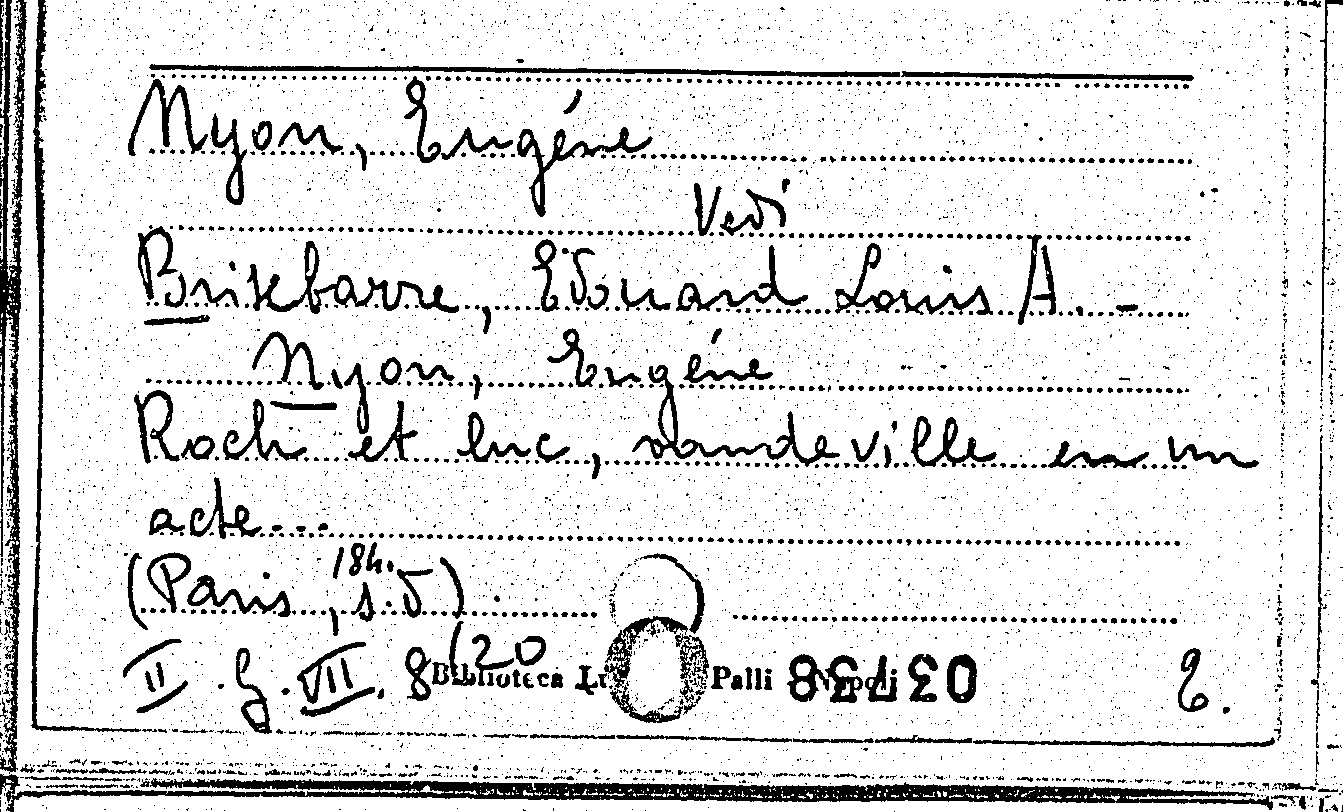 Nyon, Eugéne
Vedi
Brisebarre, Edouard Louis A. -
Nyon, Eugéne
Roch et luc, vaudeville en un
acte...
(Paris, 184. s.d)
II. G. VII. 8(20
Biblioteca Palli Napoli 03738